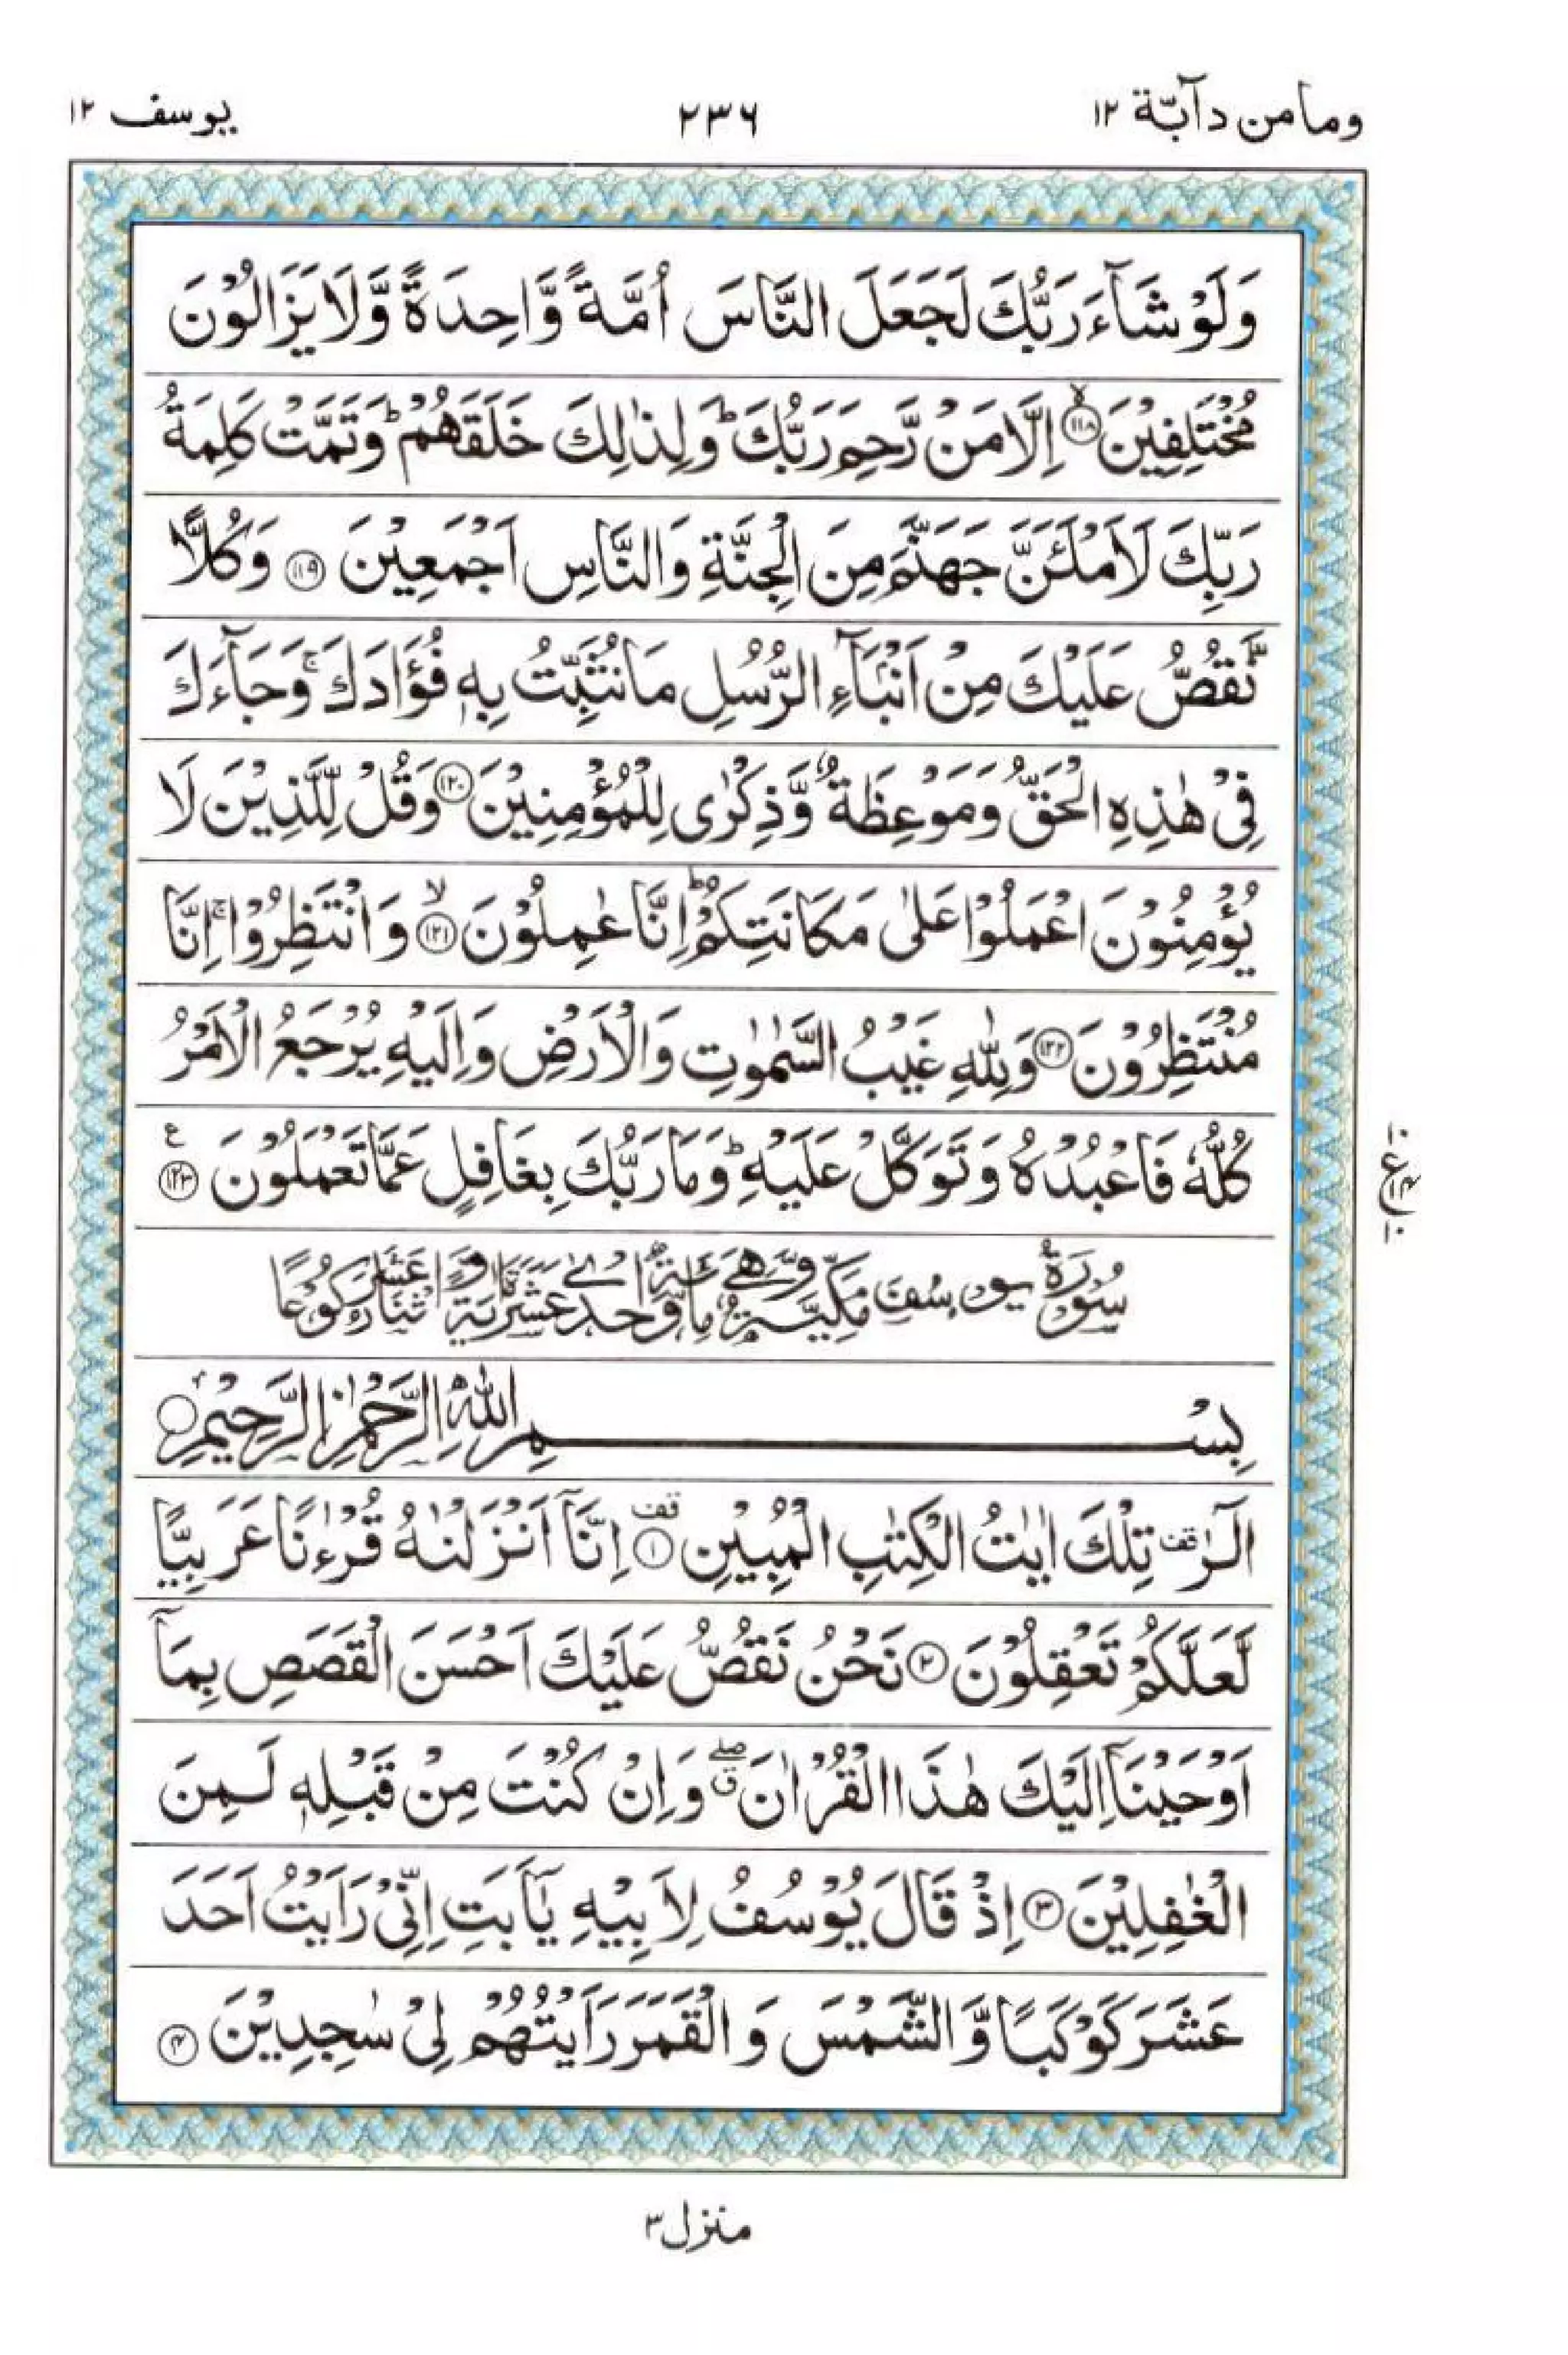 ومامن دآبّة ۱۲
۲۳۶
یوسف ۱۲
وَلَوْ شَآءَ رَبُّكَ لَجَعَلَ النَّاسَ اُمَّةً وَّاحِدَةً وَّلَا يَزَالُوْنَ
مُخْتَلِفِيْنَ ﴿۱۱۸﴾ۙ اِلَّا مَنْ رَّحِمَ رَبُّكَ ؕ وَلِذٰلِكَ خَلَقَهُمْ ؕ وَتَمَّتْ كَلِمَةُ
رَبِّكَ لَاَمْلَـَٔنَّ جَهَنَّمَ مِنَ الْجِنَّةِ وَالنَّاسِ اَجْمَعِيْنَ ﴿۱۱۹﴾ وَكُلًّا
نَّقُصُّ عَلَيْكَ مِنْ اَنْۢبَآءِ الرُّسُلِ مَا نُثَبِّتُ بِهٖ فُؤَادَكَ ۚ وَجَآءَكَ
فِيْ هٰذِهِ الْحَقُّ وَمَوْعِظَةٌ وَّذِكْرٰى لِلْمُؤْمِنِيْنَ ﴿۱۲۰﴾ وَقُلْ لِّلَّذِيْنَ لَا
يُؤْمِنُوْنَ اعْمَلُوْا عَلٰى مَكَانَتِكُمْ ؕ اِنَّا عٰمِلُوْنَ ﴿۱۲۱﴾ۙ وَانْتَظِرُوْا ۚ اِنَّا
مُنْتَظِرُوْنَ ﴿۱۲۲﴾ وَلِلّٰهِ غَيْبُ السَّمٰوٰتِ وَالْاَرْضِ وَاِلَيْهِ يُرْجَعُ الْاَمْرُ
كُلُّهٗ فَاعْبُدْهُ وَتَوَكَّلْ عَلَيْهِ ؕ وَمَا رَبُّكَ بِغَافِلٍ عَمَّا تَعْمَلُوْنَ ﴿۱۲۳﴾ ع
۱۰ ع ۱۴ ۱۰
سُوْرَةُ يُوْسُفَ مَكِّيَّةٌ وَّهِيَ مِائَةٌ وَّاِحْدٰى عَشْرَةَ اٰيَةً وَّاثْنَا عَشَرَ رُكُوْعًا
بِسْمِ اللّٰهِ الرَّحْمٰنِ الرَّحِيْمِ
الٓرٰ قف تِلْكَ اٰيٰتُ الْكِتٰبِ الْمُبِيْنِ ﴿۱﴾ قف اِنَّآ اَنْزَلْنٰهُ قُرْءٰنًا عَرَبِيًّا
لَّعَلَّكُمْ تَعْقِلُوْنَ ﴿۲﴾ نَحْنُ نَقُصُّ عَلَيْكَ اَحْسَنَ الْقَصَصِ بِمَآ
اَوْحَيْنَآ اِلَيْكَ هٰذَا الْقُرْاٰنَ ۖق وَاِنْ كُنْتَ مِنْ قَبْلِهٖ لَمِنَ
الْغٰفِلِيْنَ ﴿۳﴾ اِذْ قَالَ يُوْسُفُ لِاَبِيْهِ يٰٓاَبَتِ اِنِّيْ رَاَيْتُ اَحَدَ
عَشَرَ كَوْكَبًا وَّالشَّمْسَ وَالْقَمَرَ رَاَيْتُهُمْ لِيْ سٰجِدِيْنَ ﴿۴﴾
منزل ۳